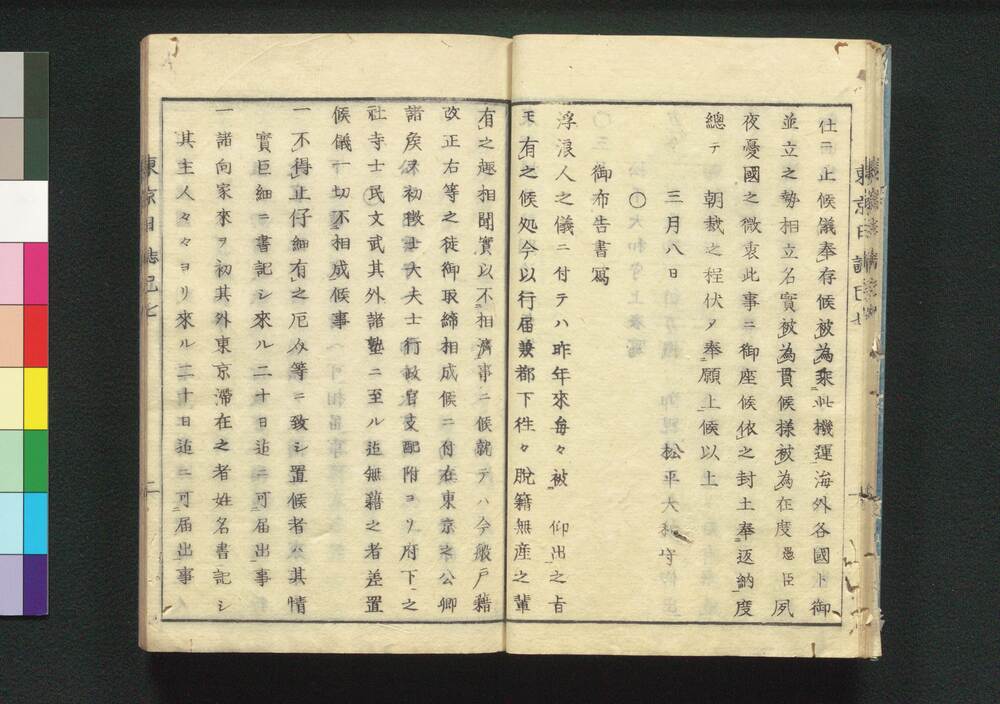 仕ニ止候儀奉存候被為乗此機運海外各國ト御
並立之勢相立名實被為貫候様被為在度愚臣夙
夜憂國之微衷此事ニ御座候依之封土奉返納度
總テ　朝裁之程伏テ奉願上候以上
三月八日　松平大和守
〇
御布告書寫
浮浪人之儀ニ付テハ昨年來毎々被　仰出之旨
モ有之候処今以行届兼郡下徃々脱籍無産之輩
有之趣相聞實以不相濟事ニ候就テハ今般戸籍
改正右等之徒御取締相成候ニ付在東京之公卿
諸侯ヲ初徴士大夫士行政官支配附ヨリ府下之
社寺士民文武其外諸塾ニ至ル迄無籍之者差置
候儀一切不相成候事
一不得止仔細有之厄介等ニ致シ置候者ハ其情
實巨細ニ書記シ來ル二十日迄ニ可届出事
一諸向家來ヲ初其外東京滞在之者姓名書記シ
其主人々々ヨリ來ル二十日迄ニ可届出事
東京日誌
二